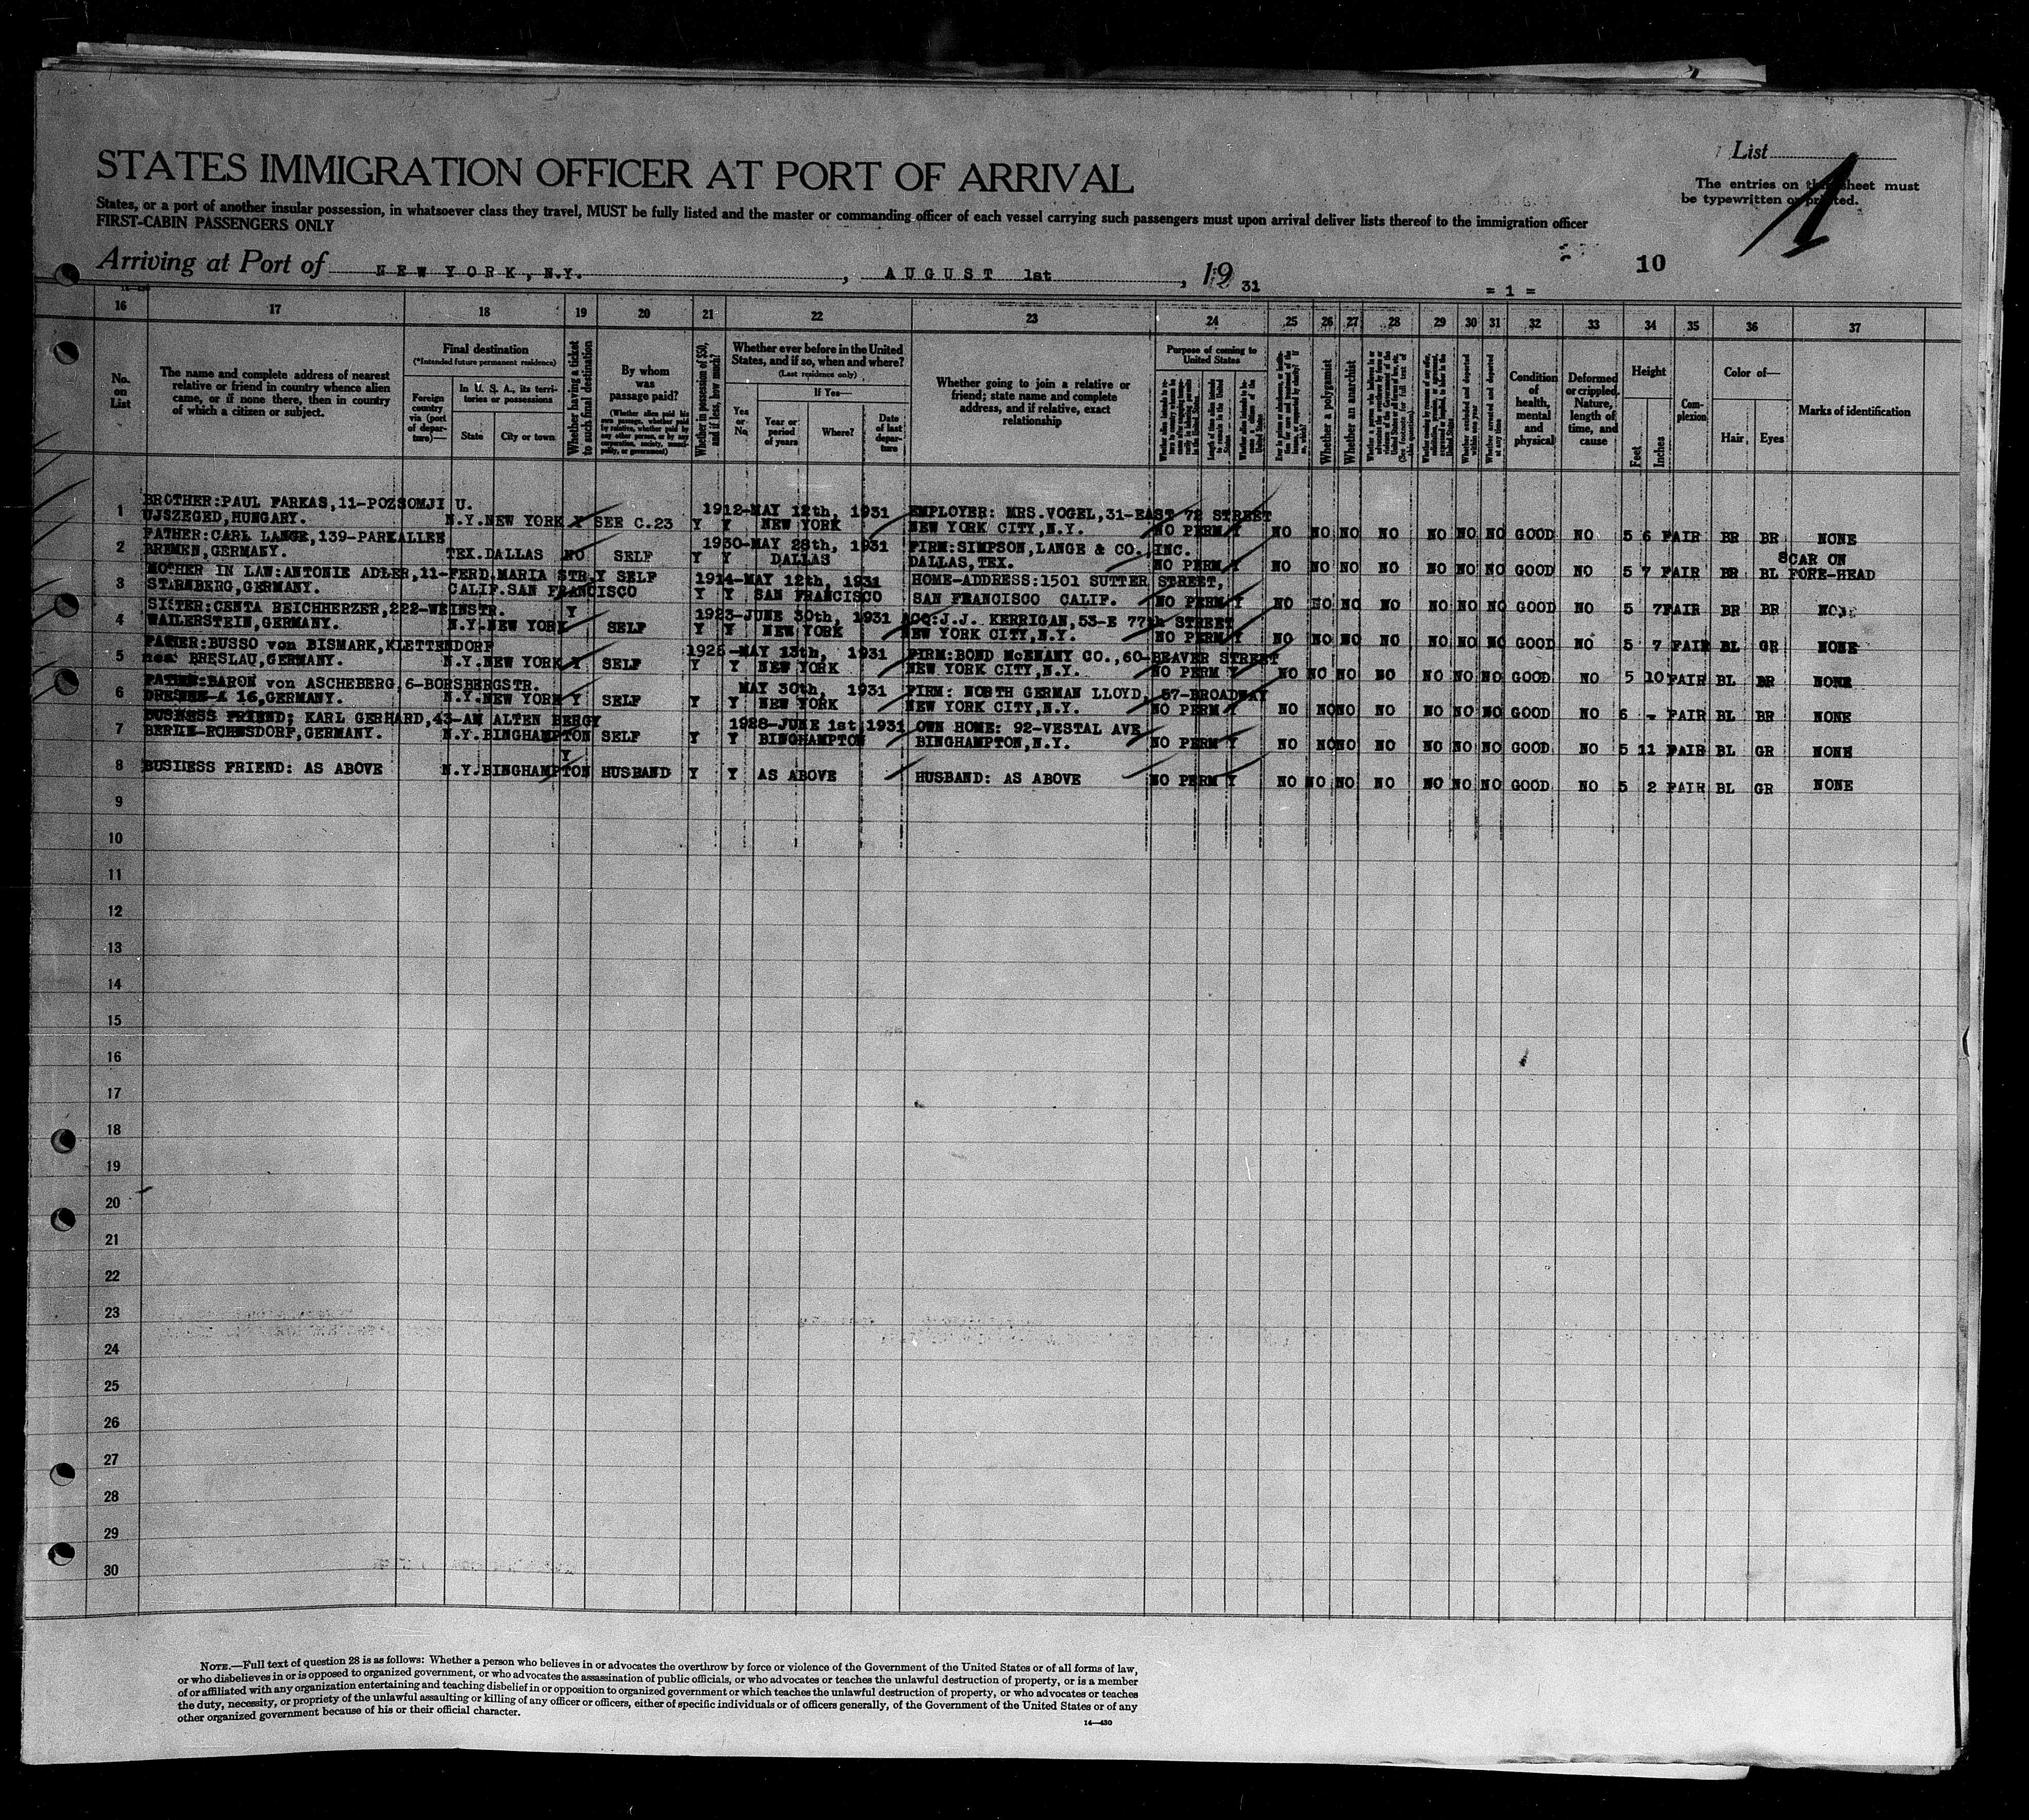 List
STATES IMMIGRATION OFFICER AT PORT OF ARRIVAL
The entries on this sheet must
be typewritten or printed.
1
States, or a port of another insular possession, in whatsoever class they travel, MUST be fully listed and the master or commanding officer of each vessel carrying such passengers must upon arrival deliver lists thereof to the immigration officer
FIRST-CABIN PASSENGERS ONLY
Arriving at Port of NEW YORK, N.Y. , AUGUST 1st , 19 31
10
= 1 =
16 17 18 19 20 21 22 23 24 25 26 27 28 29 30 31 32 33 34 35 36 37
No. on List
The name and complete address of nearest relative or friend in country whence alien came, or if none there, then in country of which a citizen or subject.
Final destination
(*Intended future permanent residence)
Foreign country via (port of departure)—
In U. S. A., its territories or possessions
State
City or town
Whether having a ticket to such final destination
By whom was passage paid?
(Whether alien paid his own passage, whether paid by relative, whether paid by any other person, or by any corporation, society, municipality, or government)
Whether in possession of $50, and if less, how much?
Whether ever before in the United States, and if so, when and where?
(Last residence only)
Yes or No
If Yes—
Year or period of years
Where?
Date of last departure
Whether going to join a relative or friend; state name and complete address, and if relative, exact relationship
Purpose of coming to United States
Whether a polygamist
Whether an anarchist
Condition of health, mental and physical
Deformed or crippled. Nature, length of time, and cause
Height
Feet
Inches
Complexion
Color of—
Hair
Eyes
Marks of identification
1 BROTHER:PAUL FARKAS,11-POZSOMJI U.
UJSZEGED,HUNGARY. N.Y.NEW YORK Y SEE C.23 Y Y 1912-MAY 12th, 1931 NEW YORK EMPLOYER: MRS.VOGEL,31-EAST 72 STREET
NEW YORK CITY,N.Y. NO PERM Y NO NO NO NO NO NO NO GOOD NO 5 6 FAIR BR BR NONE
2 FATHER:CARL LANGE,139-PARKALLEE
BREMEN,GERMANY. TEX.DALLAS NO SELF Y Y 1930-MAY 28th, 1931 DALLAS FIRM:SIMPSON,LANGE & CO.,INC.
DALLAS,TEX. NO PERM Y NO NO NO NO NO NO NO GOOD NO 5 7 FAIR BR BL SCAR ON FORE-HEAD
3 MOTHER IN LAW:ANTONIE ADLER,11-FERD.MARIA STR.Y SELF
STARNBERG,GERMANY. CALIF.SAN FRANCISCO Y Y 1914-MAY 12th, 1931 SAN FRANCISCO HOME-ADDRESS:1501 SUTTER STREET,
SAN FRANCISCO CALIF. NO PERM Y NO NO NO NO NO NO NO GOOD NO 5 7 FAIR BR BR NONE
4 SISTER:CENTA BEICHHERZER,222-WEINSTR. Y
WALLERSTEIN,GERMANY. N.Y.NEW YORK SELF Y Y 1923-JUNE 30th, 1931 NEW YORK ACC:J.J. KERRIGAN,53-E 77th STREET
NEW YORK CITY,N.Y. NO PERM Y NO NO NO NO NO NO NO GOOD NO 5 7 FAIR BL GR NONE
5 FATHER:BUSSO von BISMARK,KLETTENDORF
near BRESLAU,GERMANY. N.Y.NEW YORK Y SELF Y Y MAY 13th, 1931 NEW YORK FIRM:BOND McENANY CO.,60-BEAVER STREET
NEW YORK CITY,N.Y. NO PERM Y NO NO NO NO NO NO NO GOOD NO 5 10 FAIR BL BR NONE
6 FATHER:BARON von ASCHEBERG,6-BORSBERGSTR.
DRESDEN-A 16,GERMANY. N.Y.NEW YORK Y SELF Y Y MAY 30th, 1931 NEW YORK FIRM: NORTH GERMAN LLOYD, 57-BROADWAY
NEW YORK CITY,N.Y. NO PERM Y NO NO NO NO NO NO NO GOOD NO 6 - FAIR BL BR NONE
7 BUSINESS FRIEND; KARL GERHARD,43-AM ALTEN BERGY
BERLIN-ROHNSDORF,GERMANY. N.Y.BINGHAMPTON SELF Y Y 1928-JUNE 1st,1931 BINGHAMPTON OWN HOME: 92-VESTAL AVE
BINGHAMPTON,N.Y. NO PERM Y NO NO NO NO NO NO NO GOOD NO 5 11 FAIR BL GR NONE
8 BUSINESS FRIEND: AS ABOVE N.Y.BINGHAMPTON Y HUSBAND Y Y AS ABOVE HUSBAND: AS ABOVE NO PERM Y NO NO NO NO NO NO NO GOOD NO 5 2 FAIR BL GR NONE
9
10
11
12
13
14
15
16
17
18
19
20
21
22
23
24
25
26
27
28
29
30
NOTE.—Full text of question 28 is as follows: Whether a person who believes in or advocates the overthrow by force or violence of the Government of the United States or of all forms of law,
or who disbelieves in or is opposed to organized government, or who advocates the assassination of public officials, or who advocates or teaches the unlawful destruction of property, or is a member
of or affiliated with any organization entertaining and teaching disbelief in or opposition to organized government or which teaches the unlawful destruction of property, or who advocates or teaches
the duty, necessity, or propriety of the unlawful assaulting or killing of any officer or officers, either of specific individuals or of officers generally, of the Government of the United States or of any
other organized government because of his or their official character.
14—430